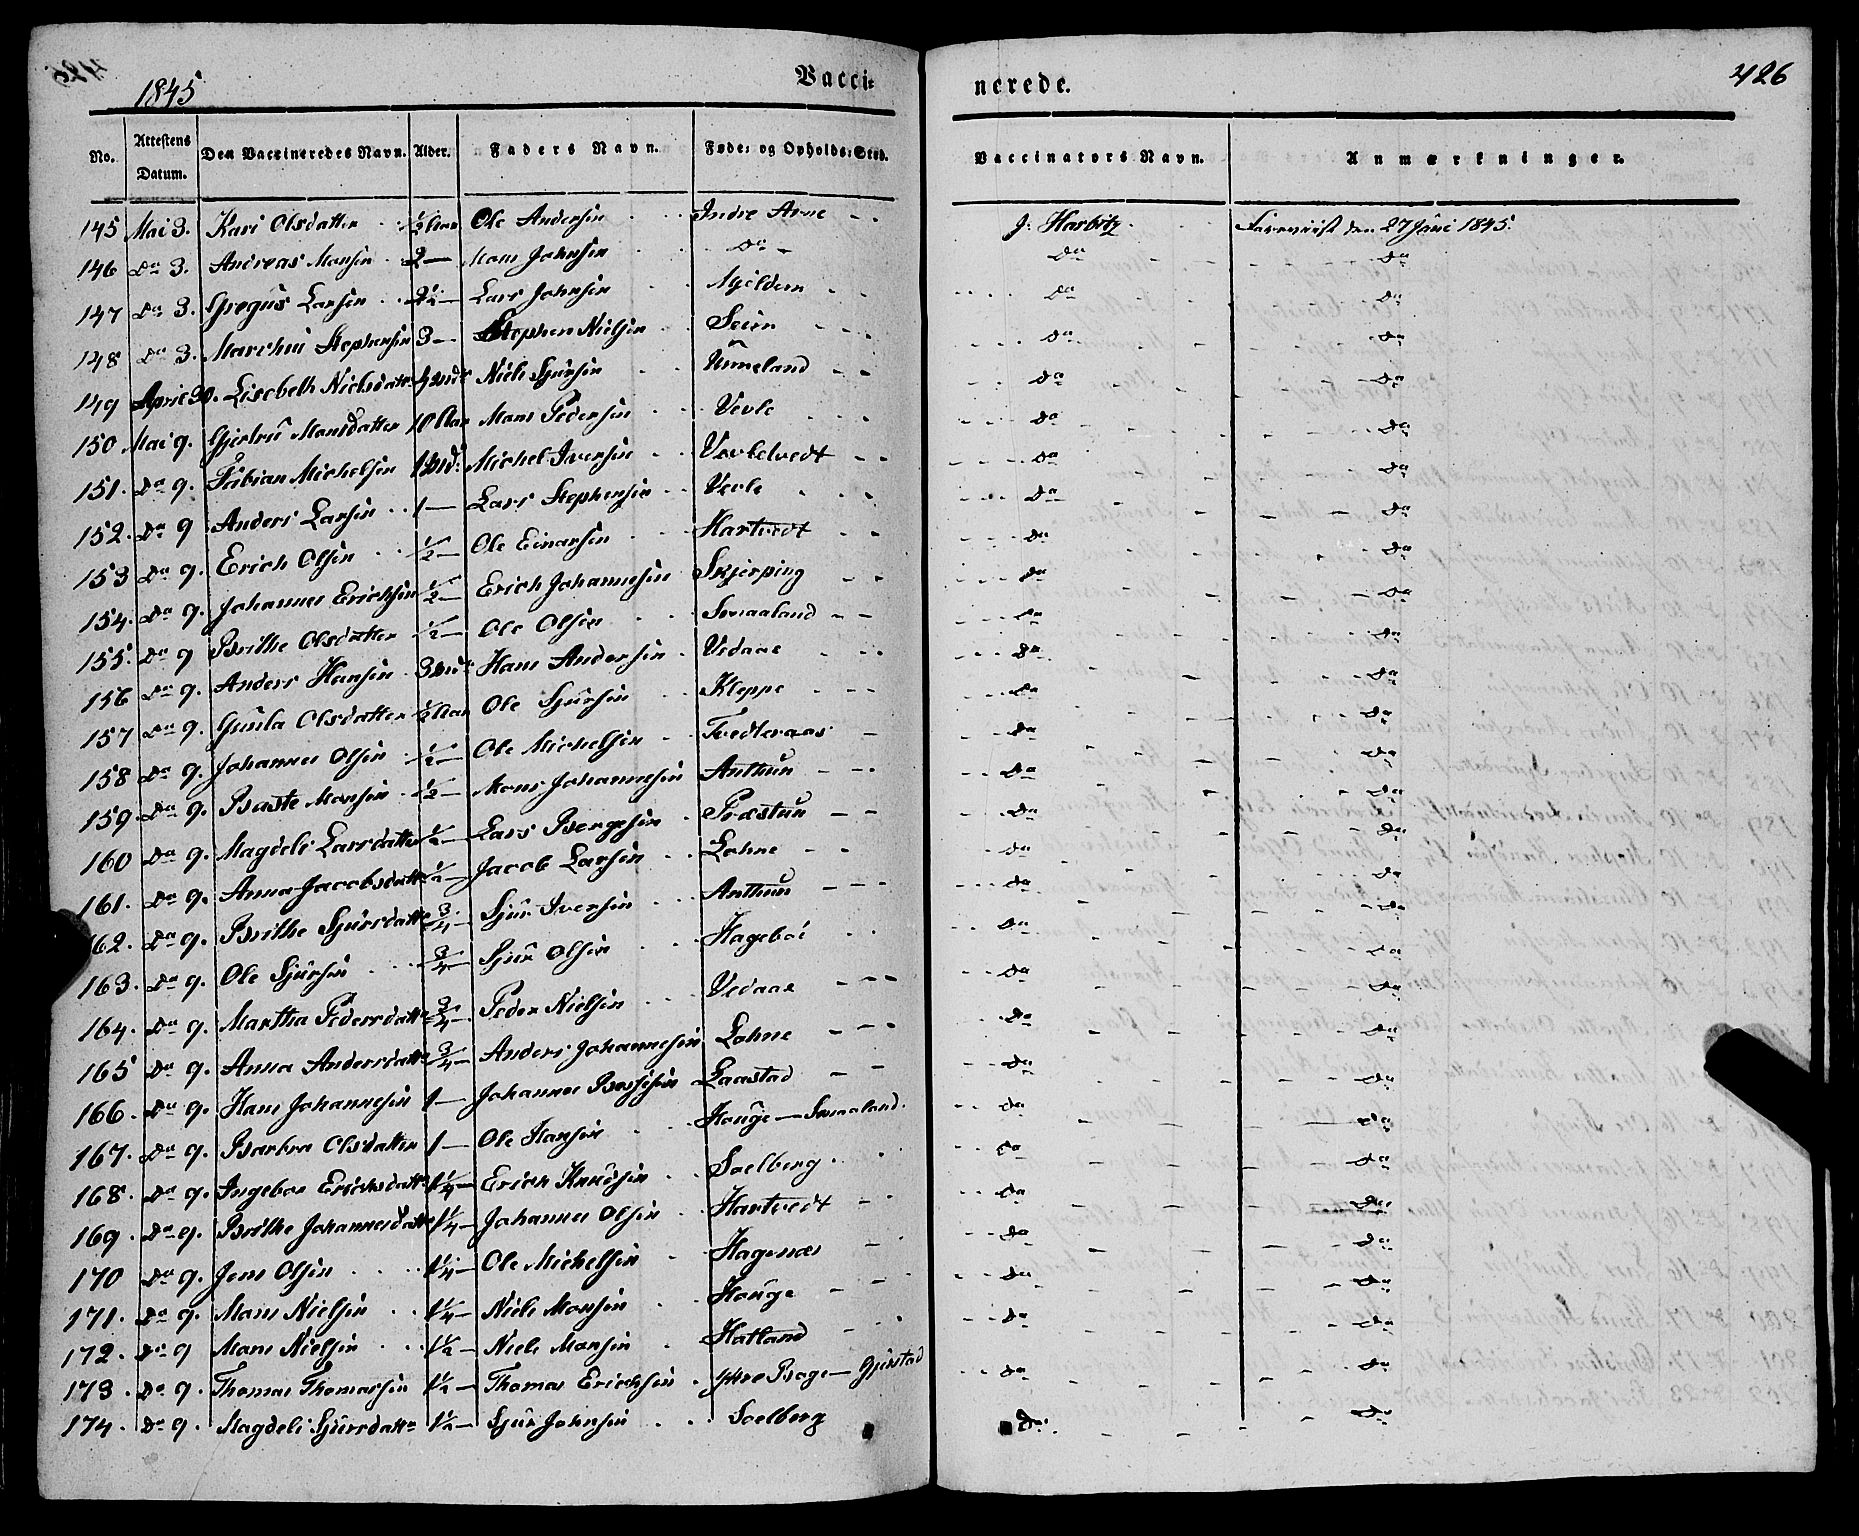 1845 Vacci= nerede. 426
No. Attestens Datum. Den Vaccineredes Navn. Alder. Faders Navn. Føde= og Opholds=Sted. Vaccinators Navn. Anmærkninger.
145 Mai 3. Kari Olsdatter ½ Aar Ole Andersen Indre Arne J: Harbitz Foreviist den 27 Juni 1845.
146 Do 3. Andreas Monsen 2 — Mons Johnsen Do Do Do
147 Do 3. Gregus Larsen 2½ — Lars Johnsen Mjeldem Do Do
148 Do 3. Marchus Stephensen 3 — Stephen Nielsen Seim Do Do
149 April 30. Lisebeth Nielsdatter 4 Mdr Niels Sjursen Unneland Do Do
150 Mai 9. Gjertru Monsdatter 10 Aar Mons Pedersen Vevle Do Do
151. Do 9. Fabian Michelsen Michel Iversen Vevletvedt Do Do
152. Do 9 Anders Larsen 1 — Lars Stephensen Vevle Do Do
153 Do 9. Erich Olsen ½ — Ole Einarsen Hartvedt Do Do
154. Do 9. Johannes Erichsen ½ — Erich Johannesen Skjerping Do Do
155. Do 9 Brithe Olsdatter ½ — Ole Olsen Smaaland Do Do
156 Do 9. Anders Hansen 3 Mdr Hans Andersen Vedaae Do Do
157 Do 9. Gunla Olsdatter ½ Aar Ole Sjursen Kleppe Do Do
158 Do 9. Johannes Olsen ½ — Ole Michelsen Tvedteraas Do Do
159. Do 9. Baste Monsen ½ — Mons Johannesen Anthun Do Do
160 Do 9. Magdeli Larsdatter ½ — Lars Børgesen Præstun Do Do
161. Do 9. Anna Jacobsdatter ½ — Jacob Larsen Lohne Do Do
162. Do 9. Brithe Sjursdatter ¾ — Sjur Iversen Anthun Do Do
163. Do 9. Ole Sjursen ¾ — Sjur Olsen Hageböe Do Do
164. Do 9. Martha Pedersdatter ¾ — Peder Nielsen Vedaae Do Do
165 Do 9. Anna Andersdatter ¾ — Anders Johannesen Lohne Do Do
166. Do 9. Hans Johannesen 1 — Johannes Børgesen Laastad Do Do
167. Do 9. Barbra Olsdatter 1 — Ole Hansen Hauge — Smaaland. Do Do
168. Do 9. Ingebor Erichsdatter 1¼ — Erich Knudsen Soelberg Do Do
169. Do 9. Brithe Johannesdatter 1¼ — Johannes Olsen Hartvedt Do Do
170 Do 9. Jens Olsen 1¼ — Ole Michelsen Hagenæs Do Do
171. Do 9. Mons Nielsen 1¼ — Niels Monsen Hauge Do Do
172. Do 9 Mons Nielsen 1½ — Niels Monsen Hatland Do Do
173. Do 9. Thomas Thomassen 1½ — Thomas Erichsen Ytre Borge — Do Do
174. Do 9. Magdeli Sjursdatter 1½ — Sjur Johnsen Soelberg Do Do